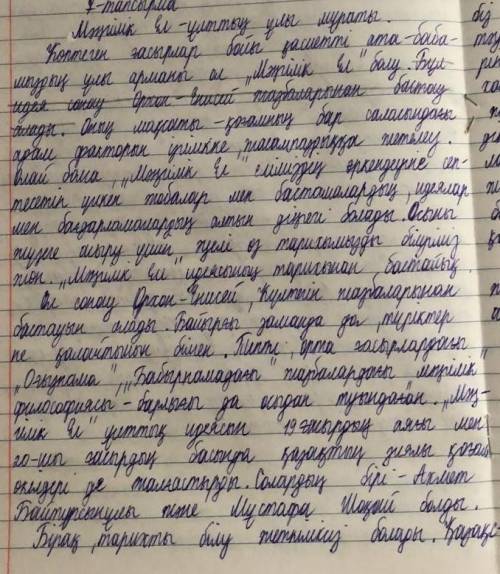 7-тапсырма
Мәңгілік Ел -ұлттың ұлы мұраты.
Көптеген ғасырлар бойы қасиетті ата-баба-
мыздың ұлы арманы ол "Мәңгілік Ел" болу. Бұл
идея сонау Орхон-Енисей жазбаларынан бастау
алады. Оның мақсаты-қоғамның бар саласындағы
адам факторын үгілікке, жетелеу.
олай болса, "Мәңгілік Ел" еліміздің өркендеуіне сеп-
тесетін үлкен жобалар мен бастамалардың, идеялар
мен бағдарламалардың алтын діңгегі болады. Осыны
жүзеге асыру үшін әуелі өз тарихымызды білуіміз
жөн. "Мәңгілік Ел" идеясының тарихынан бастайық.
Ол сонау Орхон-Енисей, Күлтегін жазбаларынан
бастауын алады. Байырғы заманда да, түріктер
не қалайтынын білген. Тіпті, орта ғасырлардағы
"Оғызнама", "Бабырнамадағы" жазбалардағы мәңгілік"
философиясы-барлығы да осыдан туындаған. "Мәң-
гілік Ел" ұлттық идеясын 19 ғасырдың аяғы мен
20-шы ғасырдың басында қазақтың зиялы қоғам
өкілдері де жалғастырды. Солардың бірі - Ахмет
Байтұрсынұлы және Мұстафа Шоқай болды.
Бірақ, тарихты білу жеткіліксіз болады. Қазақс-
біз